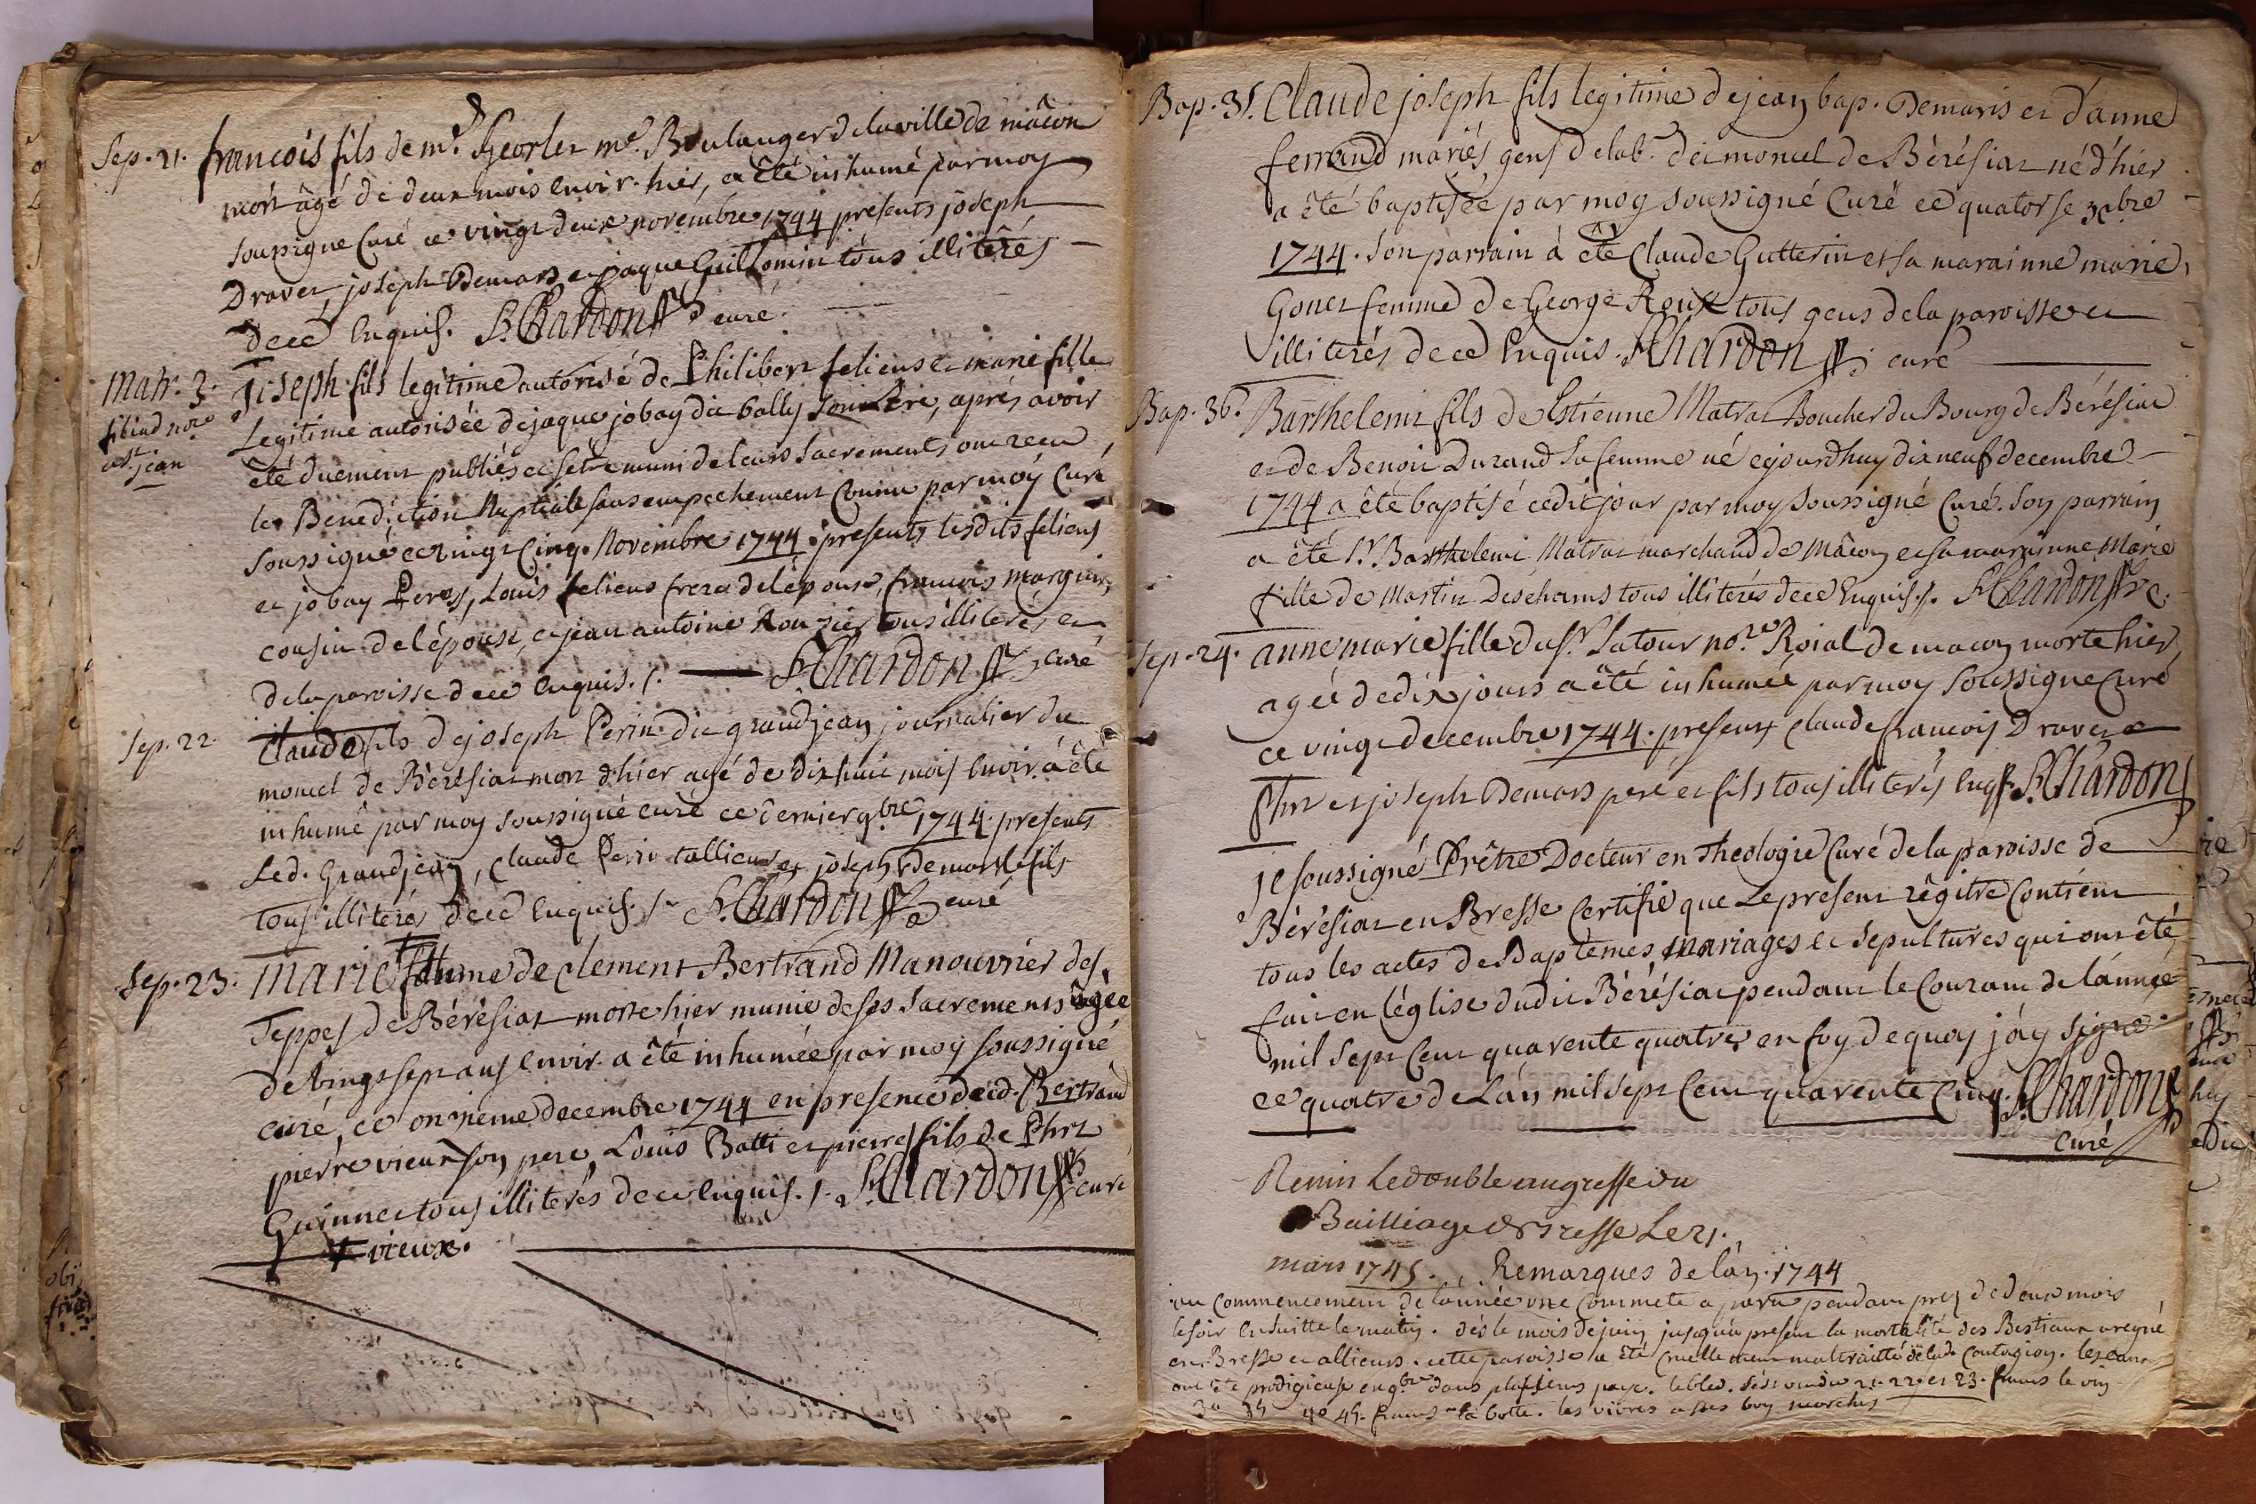 Sep. 21. francois fils de mr. Georlet me. Boulanger de la ville de mâcon
mort âgé de deux mois envir. hier, a êté inhumé par moy
soussigné Curé ce vingt deux novembre 1744 presents joseph
Dravet, joseph Demars et jaque Guillomin tous illiterés
de ce Enquis. Chardon curé.
Mar. 3. joseph fils legitime autorisé de Philibert feliens et marie fille
legitime autorisée de jaque jobay dit bally son Pere, aprés avoir
été duement publiés et s'etre muni de leurs sacrements ont recu
la Benediction Nuptiale sans empechement connu par moy Curé
soussigné ce vingt Cinq Novembre 1744. presents lesdits feliens
et jobay Peres, Louis feliens frere de lépoux, francois marguin,
cousin de lépouse, et jean antoine Rouzier tous illiterés et
de la paroisse de ce enquis. /. Chardon curé
Sep. 22. Claude fils de joseph Perin dit grandjean journalier du
moncel de Bérésiat mort d'hier agé de dix huit mois Envir. a êté
inhumé par moy soussigné curé ce dernier 9bre 1744. presents
led. Grandjean, Claude Perin et joseph Demars fils
tous illiterés de ce Enquis. /. Chardon curé
Sep. 23. marie femme de clement Bertrand Manouvrier des
Teppes de Bérésiat morte hier munie de ses sacremens agée
de vingt sept ans Envir. a êté inhumée par moy soussigné
curé, ce onzieme decembre 1744 en presence de cd. Bertrand
pierre vieux son pere Louis Batti et pierre fils de Phrt
Guinnet tous illiterés de ce enquis. /. Chardon curé
+ vieux.
Bap. 35. Claude joseph fils legitime de jean bap. Demaris et d'anne
ferrand mariés gens de lab. dei moncel de Bèrésiat né d'hier
a êté baptisée par moy soussigné Curé ce quatorse xbre
1744. son parrain à êté Claude Gutterin et sa marainne marie
Gonet femme de George Roux tous gens de la paroisse et
illiterés de ce Enquis. Chardon curé
Bap. 36. Barthelemi fils de Estienne Matrat Boucher du Bourg de Bérésiat
et de Benoit Durand sa femme né cejourdhuy dix neuf decembre
1744 a êté baptisé cedit jour par moy soussigné Curé. Son parrain
a êté Sr. Barthelemi Matrat marchand de Mâcon et sa marainne Marie
fille de Martin Deschams tous illiterés de ce Enquis. /. Chardon c.
Sep. 24. anne marie fille du Sr. Latour nore. Roial de macon morte hier,
agée de dix jours a êté inhumée par moy soussigné Curé
ce vingt decembre 1744. presents Claude francois Dravet
Phrt et joseph Demars pere et fils tous illiterés Enq. Chardon
Je soussigné Prêtre Docteur en Theologie Curé de la paroisse de
Bérésiat en Bresse certifie que Le present régitre contient
tous les actes de Baptemes, mariages et sepultures qui ont êté
fait en léglise dudit Bérésiat pendant le Courant de lánnée
mil sept Cent quarente quatre, en foy de quoy jáy signé
ce quatre de Lán mil sept Cent quarente Cinq. Chardon
curé
Remis Le double au greffe du
Bailliage de Bresse Le 21.
mars 1745.
Remarques de lán. 1744
au commencement de lánnée une commete a paru pendant prez de deux mois
le soir Ensuitte le matin. dés le mois de juin jusqua present la mortalité des Bestiaux a regné
en Bresse et allieurs. cette paroisse a êté cruellement maltraitté de lad. Contagion. les eaux
ont êté prodigieuse en 9bre dans plusieurs pays. le bled. s'est vendu 21. 22. et 23. francs le vin
30 35 40 45. francs la botte. les vivres a bon marchés